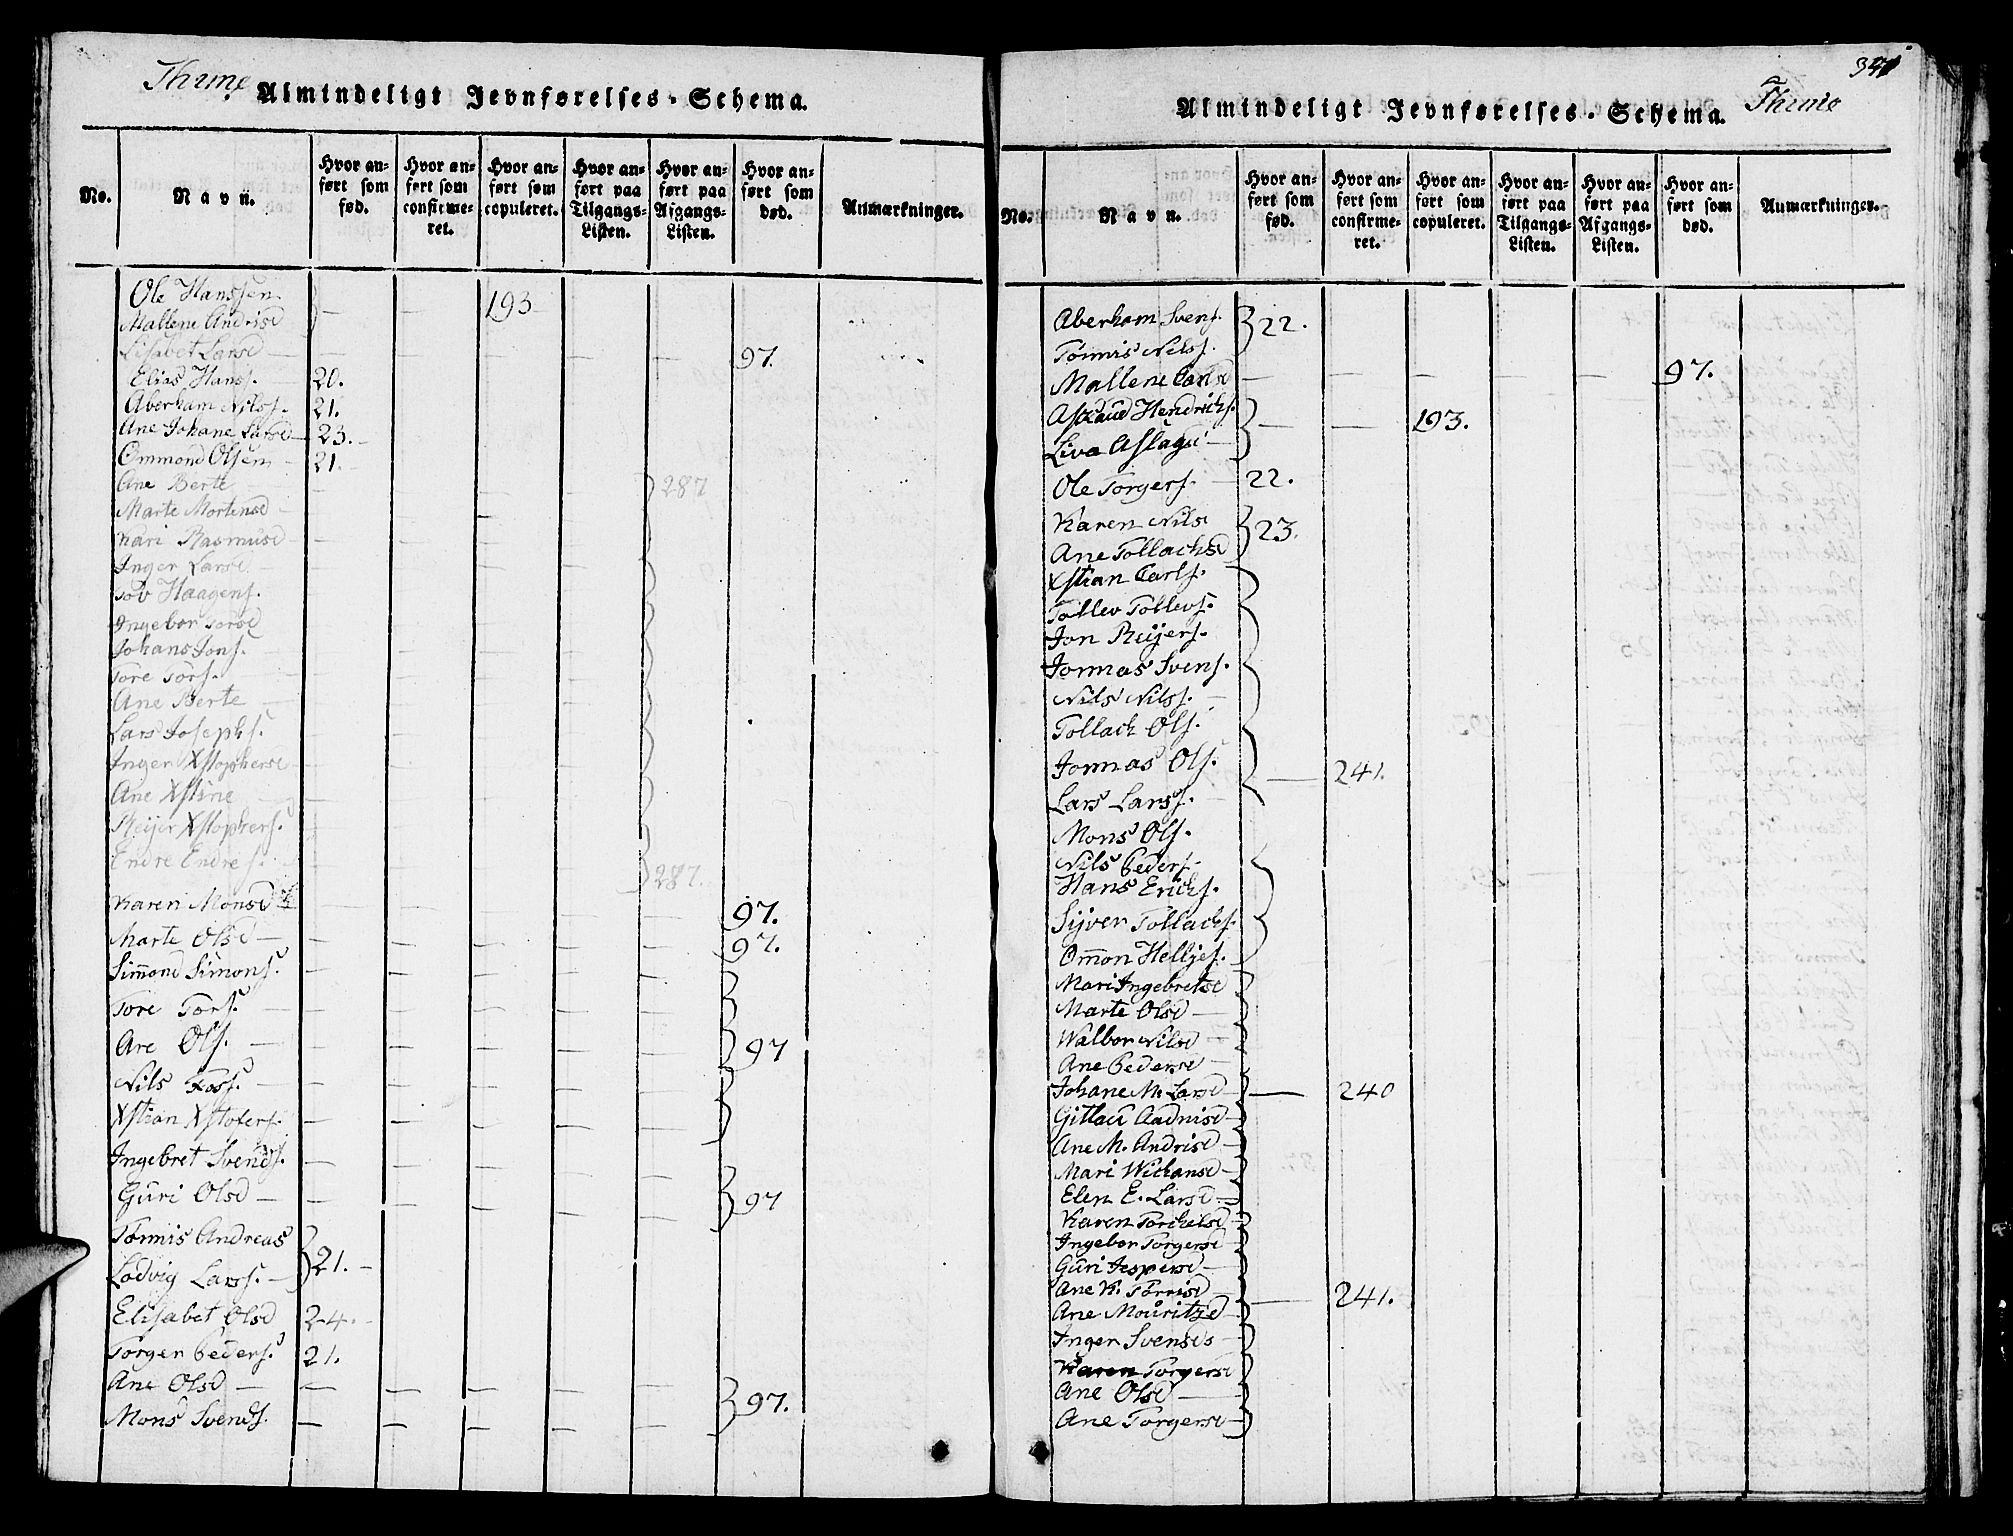 Thime Almindeligt Jevnførelses-Schema.
No. Navn. Hvor anført som fød. Hvor anført som confirmeret. Hvor anført som copuleret. Hvor anført paa Tilgangs-Listen. Hvor anført paa Afgangs-Listen. Hvor anført som død. Anmærkninger.
Ole Hanssen
Mallene Andrisd — — 193
Lisabet Larsd — — — — — — 97.
Elias Hans. 20.
Aberham Nilss. 21.
Ane Johane Larsd 23.
Ommond Olsen 21.
Ane Berte — 287
Marte Mortensd
Kari Rasmusd
Inger Larsd
Tov Haagens.
Ingebor Torsd
Johans Jons.
Tore Tors.
Ane Berte
Lars Josephs.
Inger Xstophersd
Ane Xstine
Reijer Xstophers.
Endre Endres. 287.
Karen Monsd 97.
Marte Olsd 97.
Simond Simons.
Tore Tors.
Are Ols. 97
Nils Tos.
Xstian Xstofers.
Ingebret Svends.
Guri Olsd 97
Tønnis Andreas
Lodvig Larss. 21.
Elisabet Olsd 24.
Torger Peders. 21.
Ane Olsd
Mons Svends. 97.
341
Almindeligt Jevnførelses-Schema. Thime
No. Navn. Hvor anført som fød. Hvor anført som confirmeret. Hvor anført som copuleret. Hvor anført paa Tilgangs-Listen. Hvor anført paa Afgangs-Listen. Hvor anført som død. Anmærkninger.
Aberham Svens. 22.
Tønnis Nels.
Mallene Carlsd — — — — — 97.
Astaud Hendrichs. — — 193.
Liva Aslagsd
Ole Torgers. 22.
Karen Nilsd 23.
Ane Tollachsd
Xstian Carls.
Tollev Tollevs.
Jon Reijers.
Jonnas Svens.
Nils Nilss.
Tollach Ols.
Jonnas Ols. — 241.
Lars Larss.
Mons Ols.
Nils Peders.
Hans Erichs.
Sijver Tollachs.
Ommon Helljes.
Mari Ingebretsd
Marte Olsd
Walbor Nilsd
Ane Pedersd
Johane M. Larsd — 240
Gitlau Aadnisd
Ane M. Andrisd
Mari Wichansd
Elen E. Larsd
Karen Torchelsd
Ingebor Torgersd
Guri Jespersd
Ane K. Tørrisd — 241.
Ane Mouritzd
Inger Svensd
Karen Torgersd
Ane Olsd
Ane Torgersd